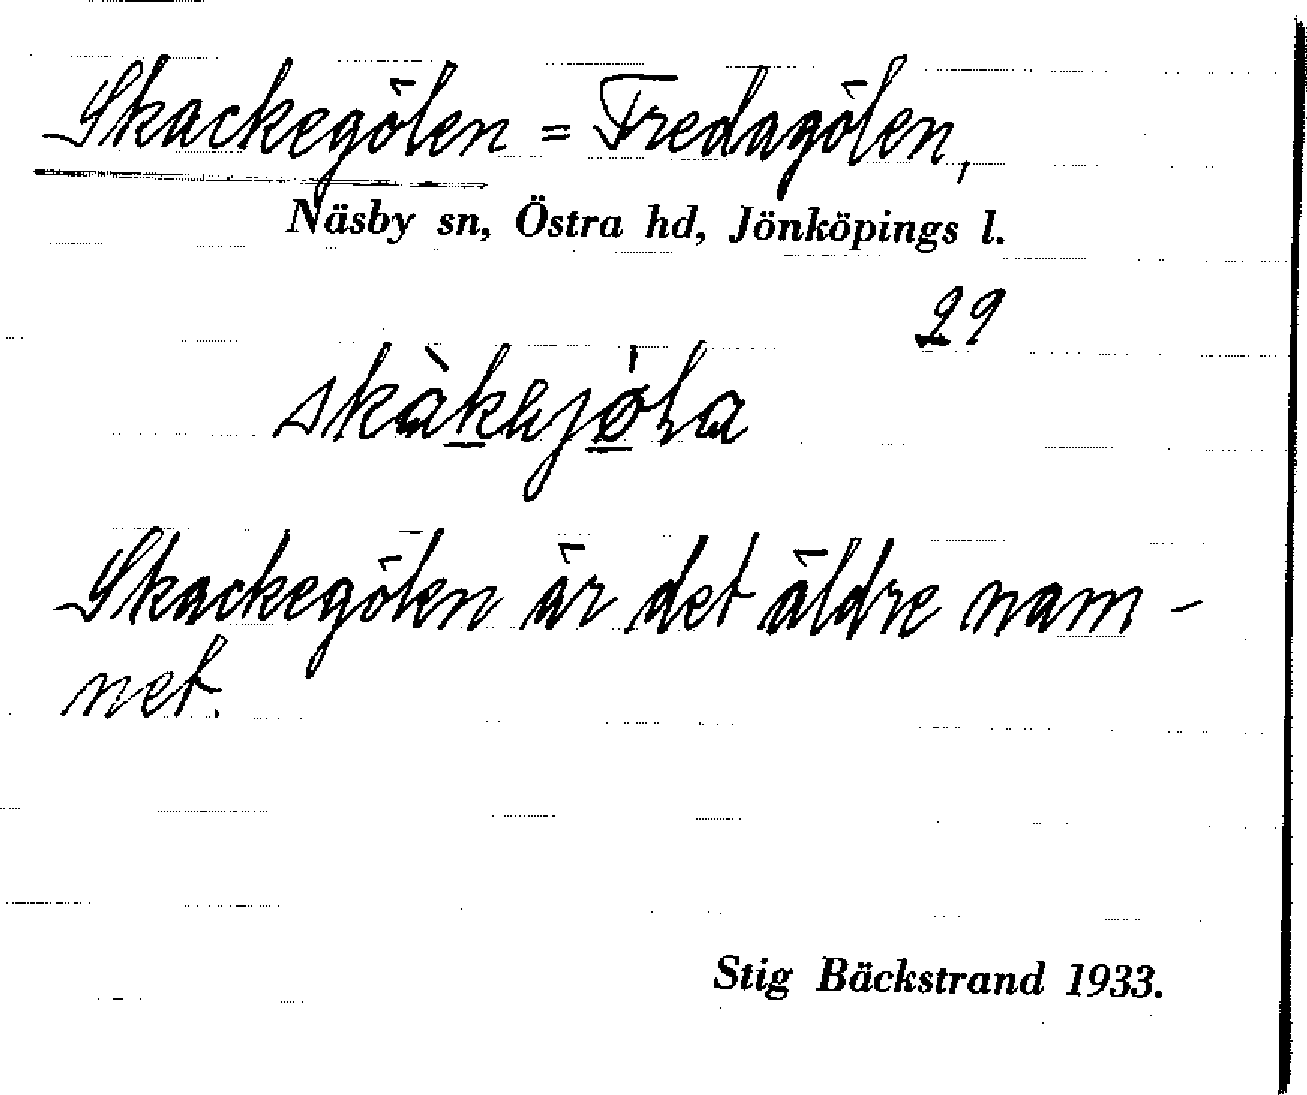 Skackegölen = Fredagölen,
Näsby sn, Östra hd, Jönköpings l.
29
Skackegölen är det äldre nam-
net.
Stig Bäckstrand 1933.